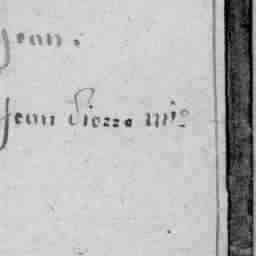 Jean.
Jean Pierre